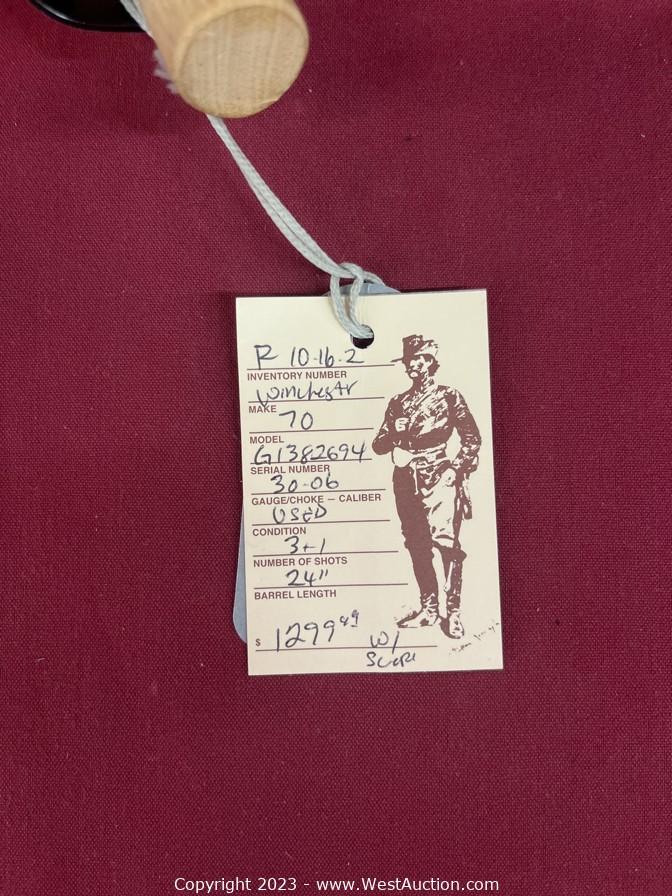 R 10-16-2
INVENTORY NUMBER
Winchester
MAKE
70
MODEL
G1382694
SERIAL NUMBER
30-06
GAUGE/CHOKE — CALIBER
USED
CONDITION
3+1
NUMBER OF SHOTS
24"
BARREL LENGTH
$ 1299 49 w/
Scope
Copyright 2023 - www.WestAuction.com